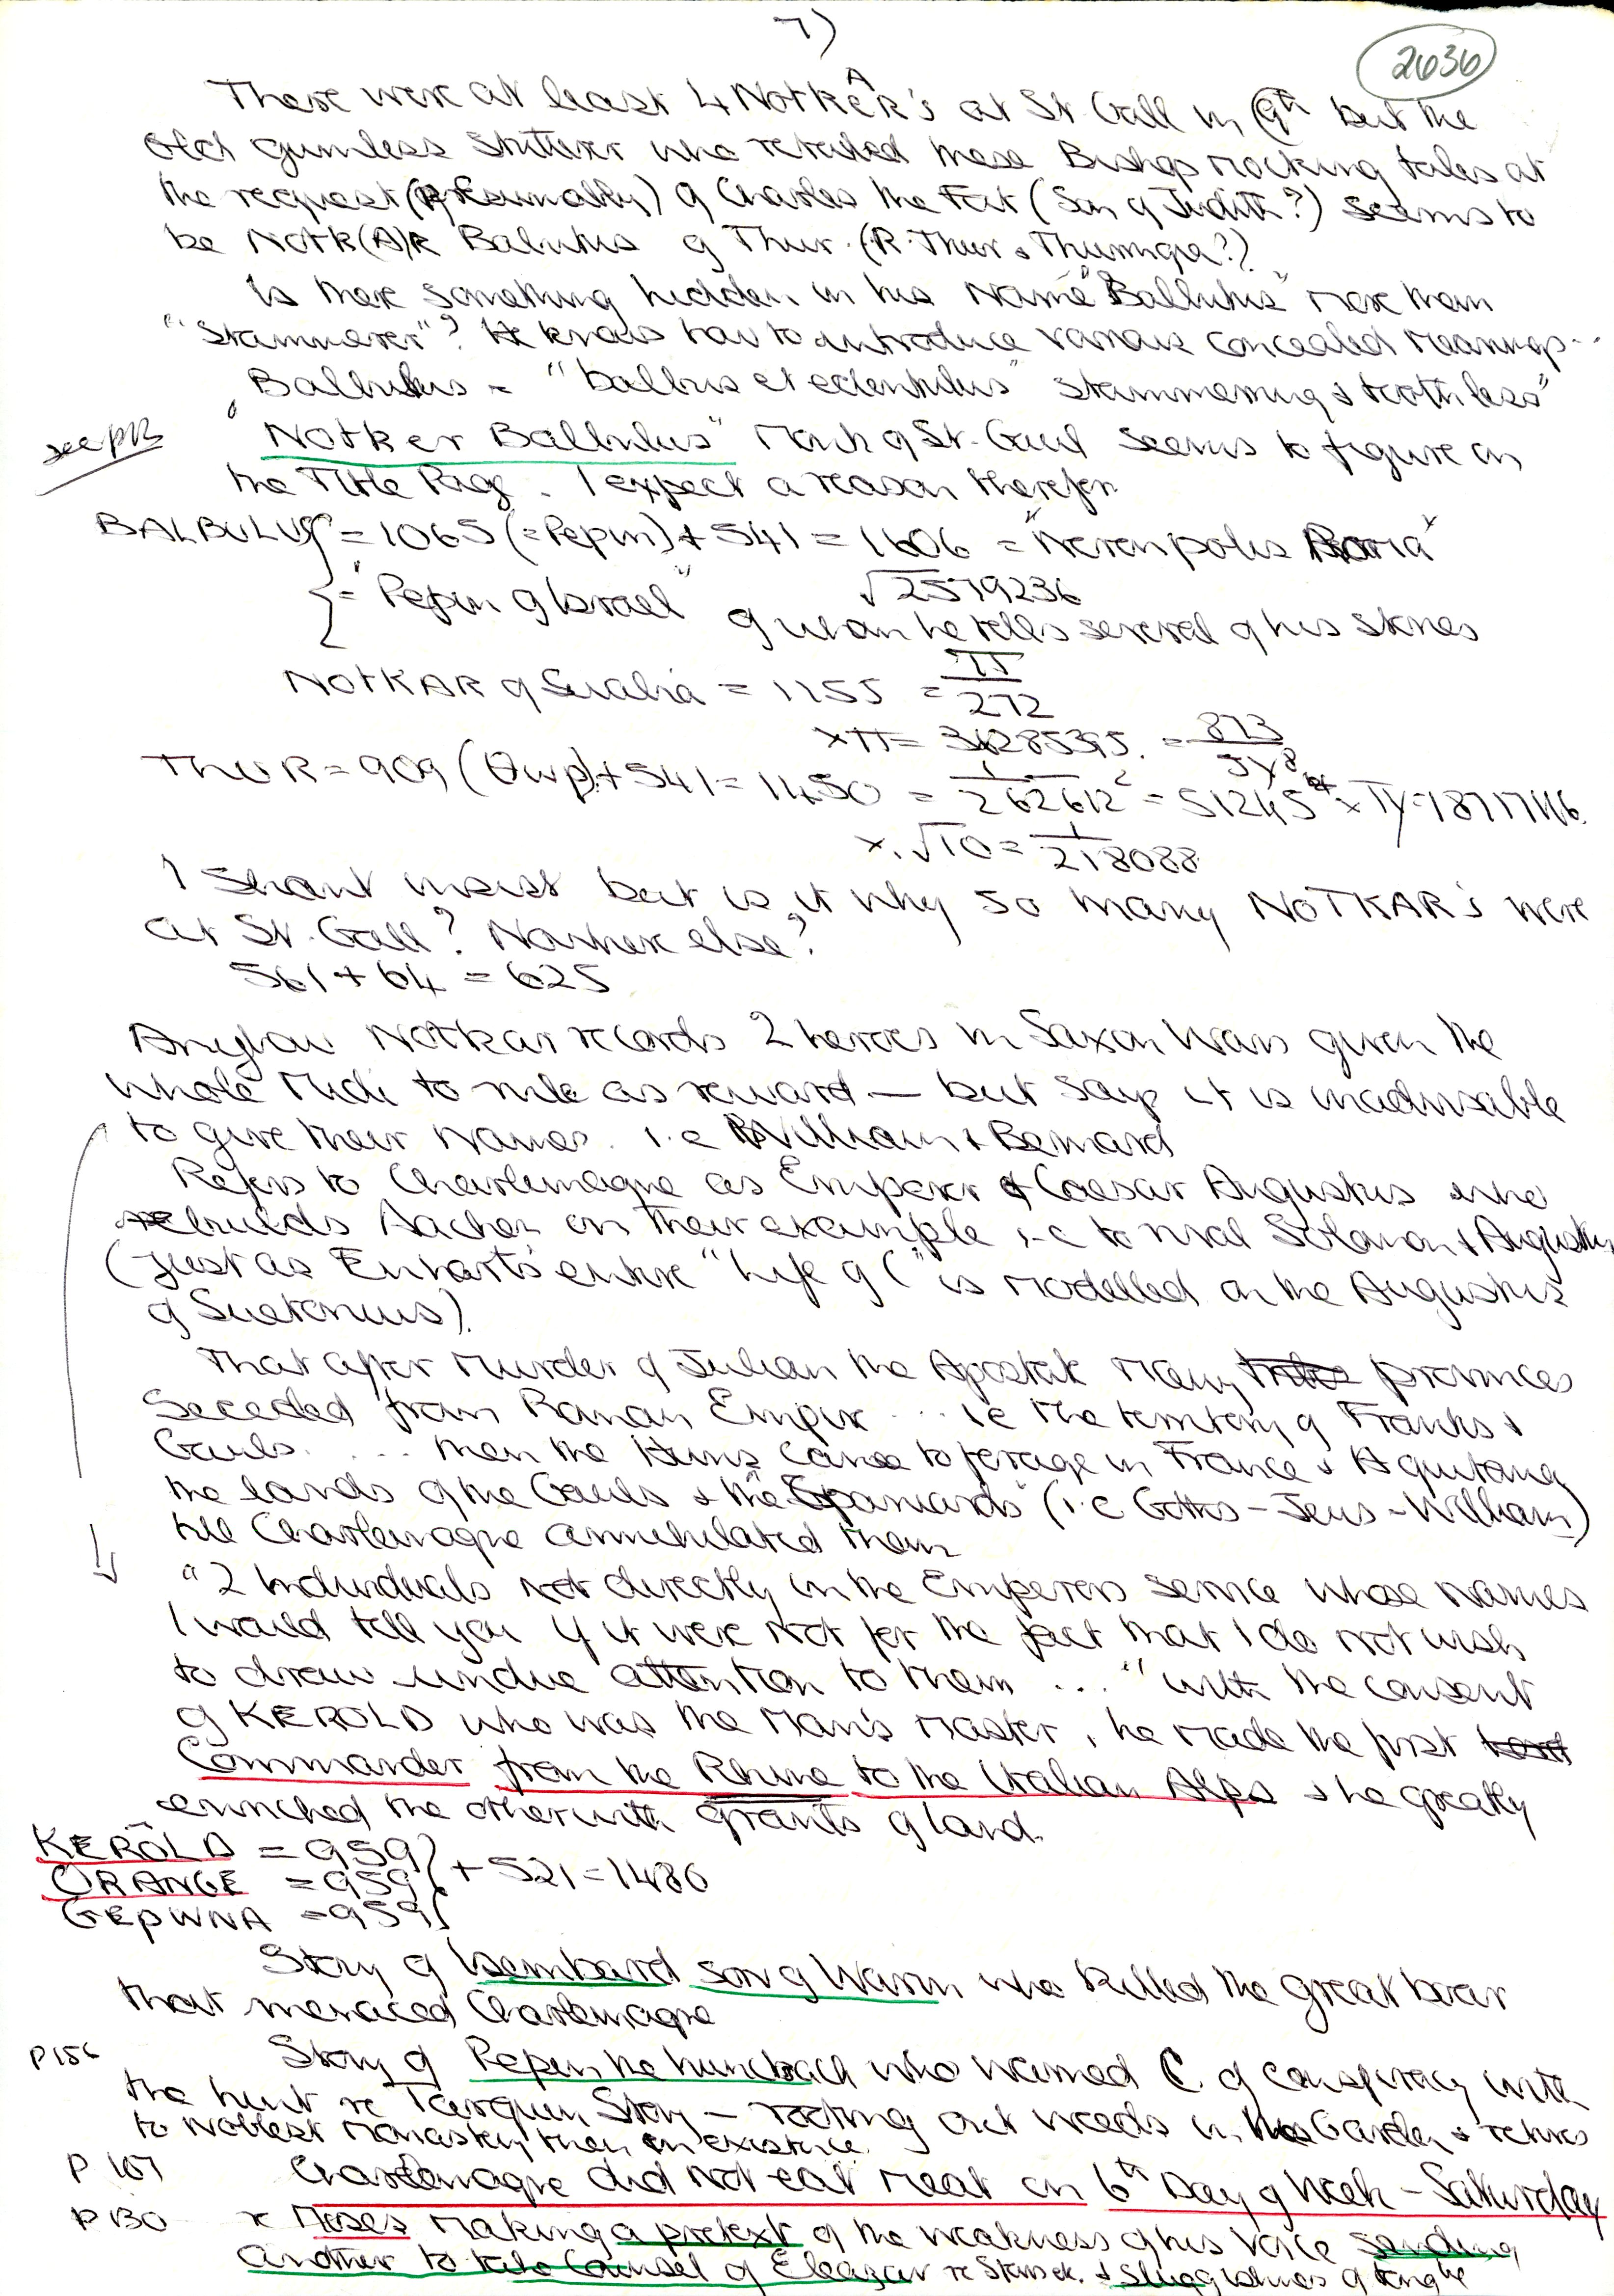 7)
2636
There were at least 4 NotkeR's at St Gall in 9th but the
A
old gumless stutterer who retailed these Bishop mocking tales at
the request (presumably) of Charles the Fat (Son of Judith?) seems to
be Notk(A)R Balbulus of Thur. (R. Thur & Thuringia?)
Is there something hidden in his Name "Balbulus" more than
"Stammerer"? He knows how to introduce various concealed meanings...
Balbulus = "balbus et edentulus" stammering & toothless"
see p13
"Notker Balbulus" Monk of St. Gaul seems to figure on
the Title Page. I expect a reason therefor
BALBULUS = 1065 (=Pepin) + 541 = 1606 = "Neronpolis Roma"
√2579236
= "Pepin of Israel" of whom he tells several of his stories
NOTKAR of Swabia = 1155 = π/272
xπ = 3628535. = 873/
THUR = 909 (Θωρ) + 541 = 1450 = 1/262612² = 51245 x = 7877716.
x √10 = 1/218088
I shant insist but is it why so many NOTKAR's were
at St. Gall? Nowhere else?
561 + 64 = 625
Anyhow Notkar records 2 heroes in Saxon Wars given the
whole Midi to rule as reward — but says it is inadvisable
to give their names. i.e William & Bernard
Refers to Charlemagne as Emperor & Caesar Augustus who
rebuilds Aachen on their example, i-e to rival Solomon & Augustus
(just as Einhart's entire "Life of C" is modelled on the Augustus
of Suetonius).
That after Murder of Julian the Apostate many provinces
Seceded from Roman Empire ... ie the territory of Franks &
Gauls ... then the Huns came to forage in France & Aquitaine
the lands of the Gauls & the "Spaniards" (i.e Goths - Jews - William)
till Charlemagne annihilated them
"2 Individuals not directly in the Emperors service whose names
I would tell you if it were not for the fact that I do not wish
to draw undue attention to them ..." with the consent
of KEROLD who was the man's master, he made the first
Commander from the Rhine to the Italian Alps & he greatly
enriched the other with grants of land.
KERŌLD = 959
ORANGE = 959 } + 521 = 1480
GEPWNA = 959
Story of Isembard son of Warin who killed the great boar
that menaced Charlemagne
p 156 Story of Pepin the hunchback who warned C. of conspiracy with
the hint re Tarquin Story — rooting out weeds in the Garden & retires
to noblest monastery then in existence.
P 107 Charlemagne did not eat meat on 6th Day of Week - Saturday
P 130 re Moses making a pretext of the weakness of his voice sending
another to take Counsel of Eleazar re & sluggishness of tongue